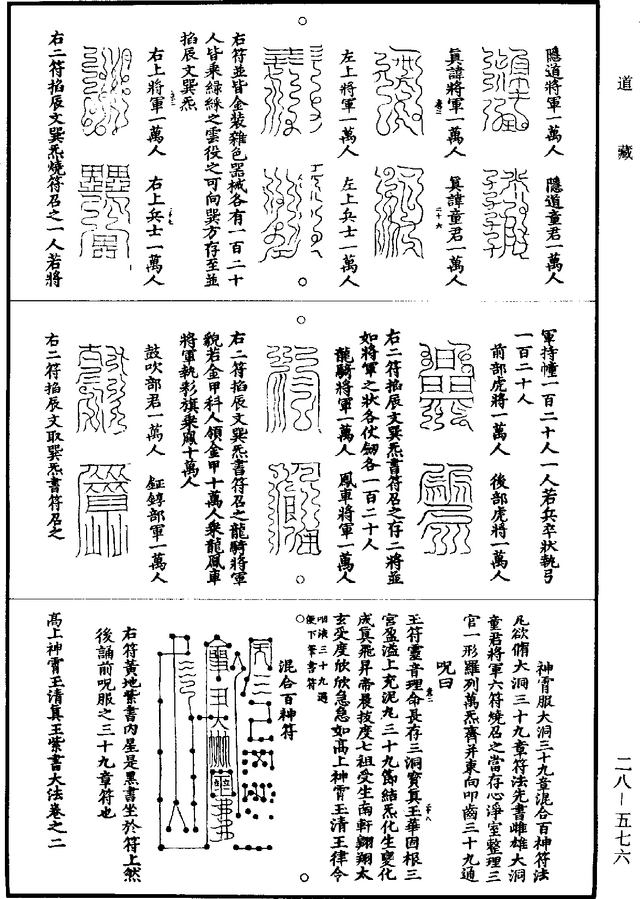 道藏
隱道將軍一萬人　隱道童君一萬人
真諱將軍一萬人　真諱童君一萬人
左上將軍一萬人　左上兵士一萬人
右符並皆金裝雜色器械各有一百二十
人皆乘綠綵之雲役之可向巽方存至並
掐辰文巽炁
右上將軍一萬人　右上兵士一萬人
右二符掐辰文巽炁燒符召之一人若將
軍持幢一百二十人一人若兵卒狀執弓
一百二十人
前部虎將一萬人　後部虎將一萬人
右二符掐辰文巽炁書符召之存二將並
如將軍之狀各仗劒各一百二十人
龍騎將軍一萬人　鳳車將軍一萬人
右二符掐辰文巽炁書符召之龍騎將軍
貌若金甲科人領金甲十萬人乘龍鳳車
將軍執彩旗乘鳳十萬人
鼓吹部君一萬人　鉦錞部軍一萬人
右二符掐辰文取巽炁書符召之
神霄服大洞三十九章混合百神符法
凡欲脩大洞三十九章符法先書雌雄大洞
童君將軍六符燒召之當存心淨室整理三
官一形羅列萬炁齊并東向叩齒三十九通
呪曰
玉符靈音理命長存三洞寶真玉華固根三
宮盈溢上充泥丸三十九篇結炁化生變化
成真飛昇帝晨拔度七祖受生南軒翺翔太
玄受度欣欣急急如高上神霄玉清王律令
咽液三十九過
便下筆書符
混合百神符
右符黃地紫書內星是黑書坐於符上然
後誦前呪服之三十九章符也
高上神霄玉清真王紫書大法卷之二
二八—五七六